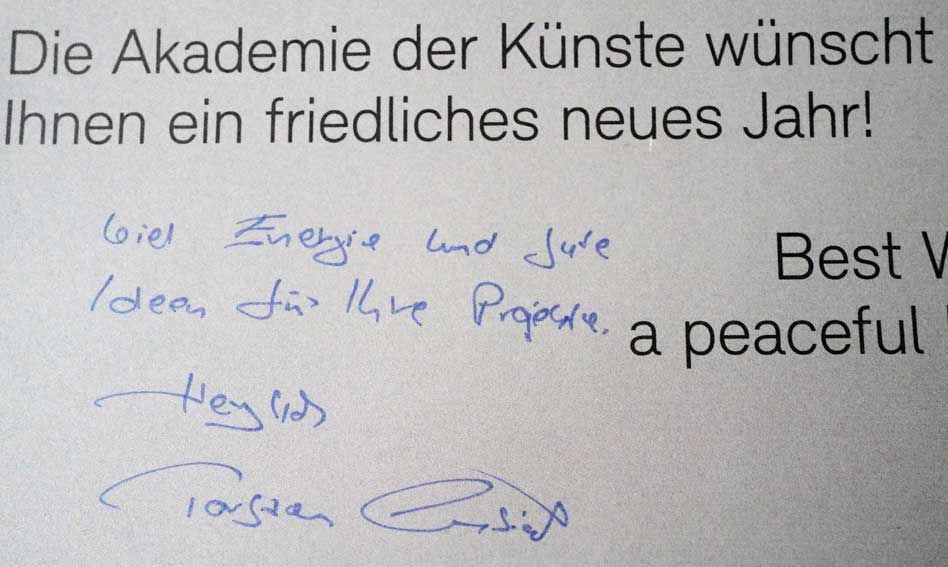 Die Akademie der Künste wünscht
Ihnen ein friedliches neues Jahr!
Viel Energie und gute
Ideen für Ihre Projekte.
Best
a peaceful
Herzlich
Torsten